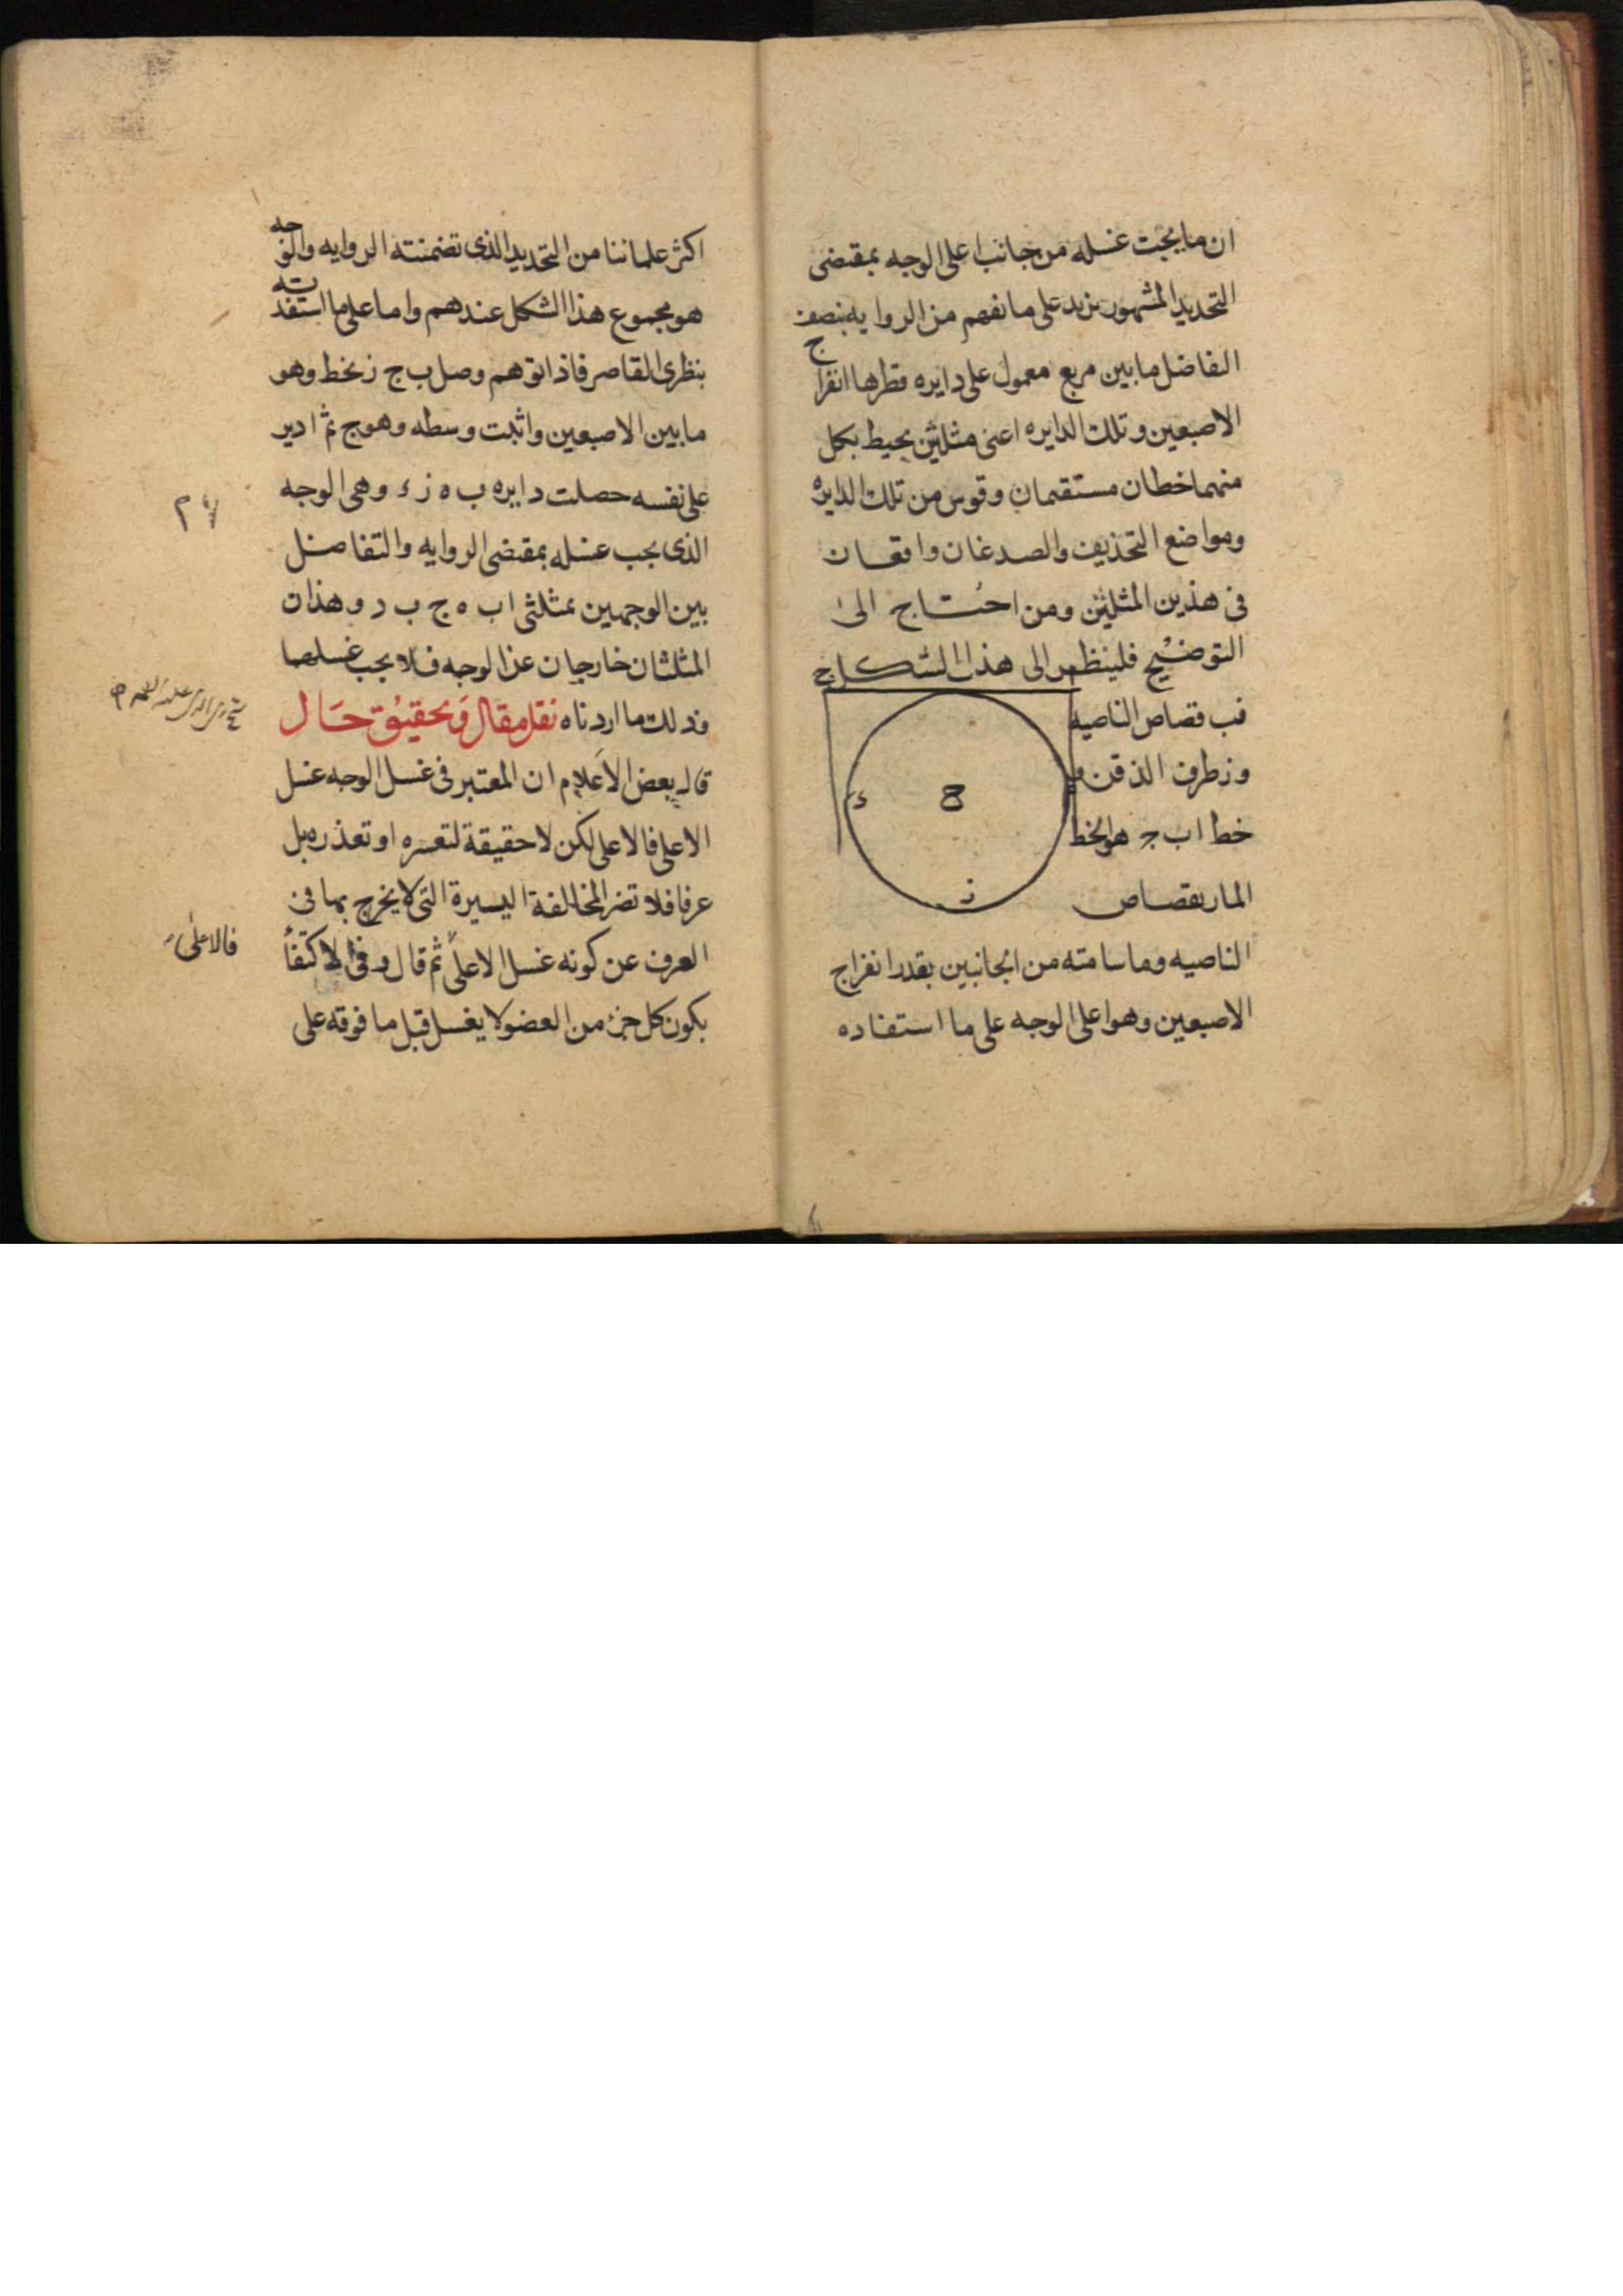 ان ما يجب غسله من جانب اعلى الوجه بمقتضى
التحديد المشهور يزيد على ما نفهم من الروايه بنصف
التفاضل ما بين مربع معمول على دايره قطرها انفراج
الاصبعين وتلك الدايره اعنى مثلثين يحيط بكل
منهما خطان مستقيمان وقوس من تلك الدايره
ومواضع التحذيف والصدغان واقعان
فى هذين المثلثين ومن احتاج الى
التوضيح فلينظر الى هذا الشكل
ج
فب قصاص الناصيه
وز طرف الذقن و
خط ا ب ج هو الخط
المار بقصاص
ء
ح
ز
الناصيه وما سامته من الجانبين بقدر انفراج
الاصبعين وهو اعلى الوجه على ما استفاده
اكثر علمائنا من التحديد الذى تضمنته الروايه والوجه
هو مجموع هذا الشكل عندهم واما على ما استفدته
بنظرى القاصر فاذا توهم وصل ب ج ز بخط وهو
ما بين الاصبعين واثبت وسطه وهو ج ثم ادير
على نفسه حصلت دايره ب ه ز ء وهى الوجه
الذى يجب غسله بمقتضى الروايه والتفاضل
بين الوجهين بمثلثى ا ب ه ج ب د وهذان
المثلثان خارجان عن الوجه فلا يجب غسلهما
وذلك ما اردناه نقل مقال وتحقيق حال
قال بعض الاعلام ان المعتبر فى غسل الوجه غسل
الاعلى فالاعلى لكن لا حقيقة لتعسره او تعذره بل
عرفا فلا تضر المخالفة اليسيرة التى لا يخرج بها فى
العرف عن كونه غسل الاعلى ثم قال وفى الاكتفأ
بكون كل جزء من العضو لا يغسل قبل ما فوقه على
فالاعلى